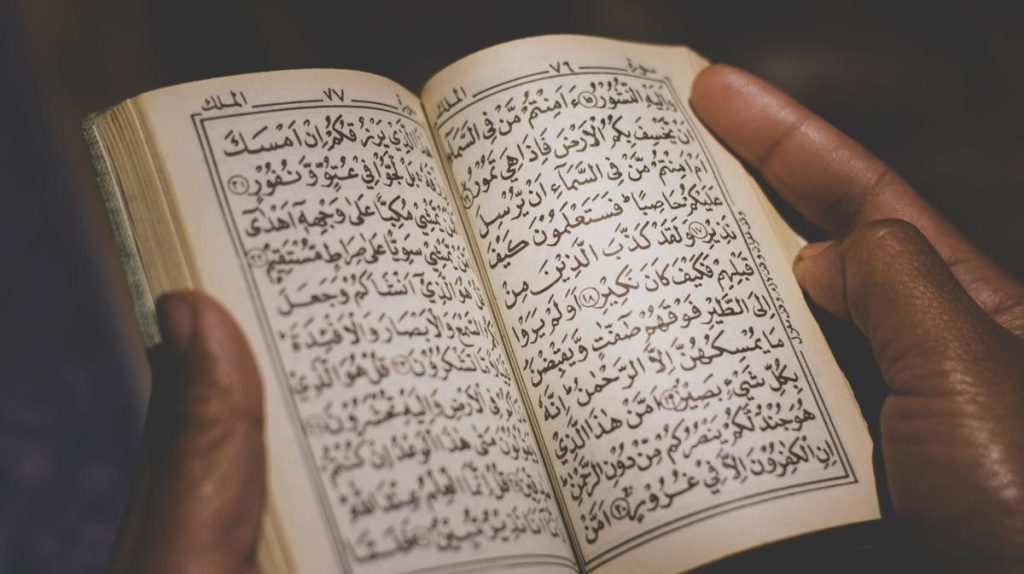 سورة ٧٦ الملك
وَاِلَيْهِ النُّشُوْرُ ﴿١٥﴾ ءَاَمِنْتُمْ مَّنْ فِى السَّمَآءِ
اَنْ يَّخْسِفَ بِكُمُ الْاَرْضَ فَاِذَا هِىَ تَمُوْرُ ﴿١٦﴾
اَمْ اَمِنْتُمْ مَّنْ فِى السَّمَآءِ اَنْ يُّرْسِلَ
عَلَيْكُمْ حَاصِبًا ؕ فَسَتَعْلَمُوْنَ كَيْفَ
نَذِيْرِ ﴿١٧﴾ وَلَقَدْ كَذَّبَ الَّذِيْنَ مِنْ
قَبْلِهِمْ فَكَيْفَ كَانَ نَكِيْرِ ﴿١٨﴾ اَوَلَمْ يَرَوْا
اِلَى الطَّيْرِ فَوْقَهُمْ صٰٓفّٰتٍ وَّيَقْبِضْنَ
مَا يُمْسِكُهُنَّ اِلَّا الرَّحْمٰنُ اِنَّهٗ
بِكُلِّ شَىْءٍۢ بَصِيْرٌ ﴿١٩﴾ اَمَّنْ هٰذَا الَّذِىْ
هُوَ جُنْدٌ لَّكُمْ يَنْصُرُكُمْ مِّنْ دُوْنِ الرَّحْمٰنِ
اِنِ الْكٰفِرُوْنَ اِلَّا فِىْ غُرُوْرٍ ﴿٢٠﴾ اَمَّنْ
سورة ٧٧ الملك
الَّذِىْ يَرْزُقُكُمْ اِنْ اَمْسَكَ
بَلْ لَّجُّوْا فِىْ عُتُوٍّ وَّنُفُوْرٍ ﴿٢١﴾
يَّمْشِىْ مُكِبًّا عَلٰى وَجْهِهٖٓ اَهْدٰٓى
يَّمْشِىْ سَوِيًّا عَلٰى صِرَاطٍ مُّسْتَقِيْمٍ ﴿٢٢﴾
هُوَ الَّذِىْٓ اَنْشَاَكُمْ وَجَعَلَ
السَّمْعَ وَالْاَبْصَارَ وَالْاَفْئِدَةَ
مَّا تَشْكُرُوْنَ ﴿٢٣﴾ قُلْ هُوَ الَّذِىْ
فِى الْاَرْضِ وَاِلَيْهِ تُحْشَرُوْنَ ﴿٢٤﴾
مَتٰى هٰذَا الْوَعْدُ اِنْ كُنْتُمْ
قُلْ اِنَّمَا الْعِلْمُ عِنْدَ اللّٰهِ
اَنَا نَذِيْرٌ مُّبِيْنٌ ﴿٢٦﴾ فَلَمَّا